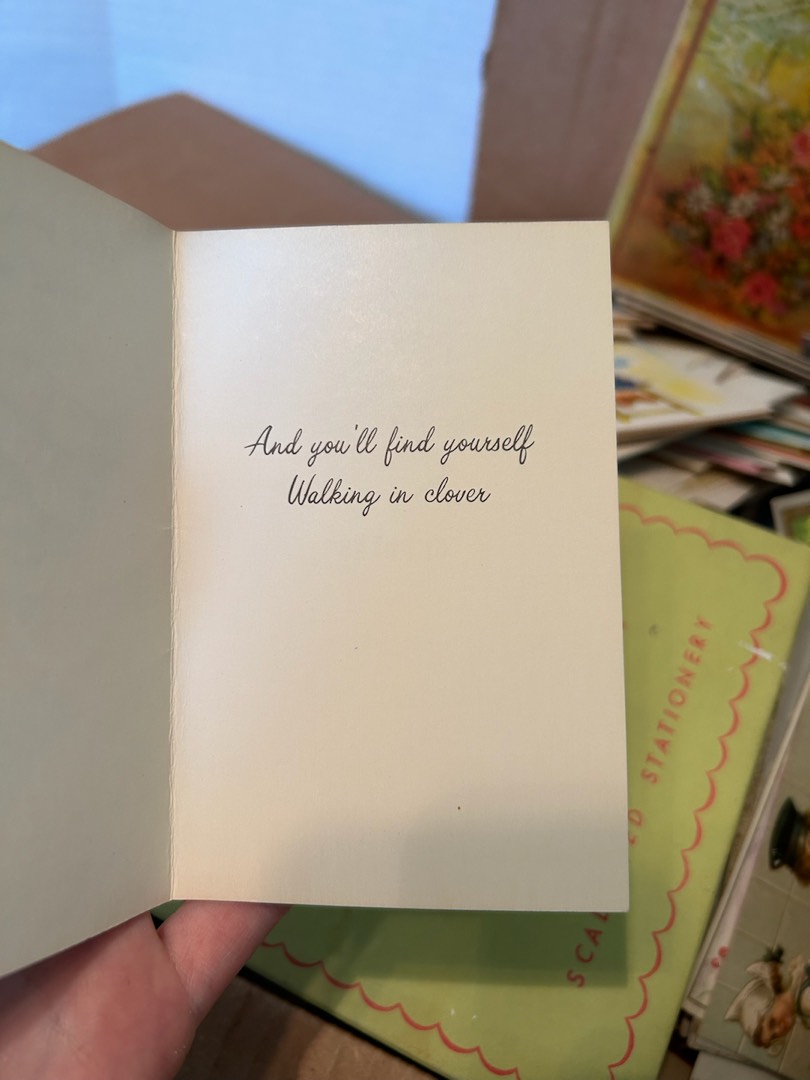 And you'll find yourself
Walking in clover
STATIONERY